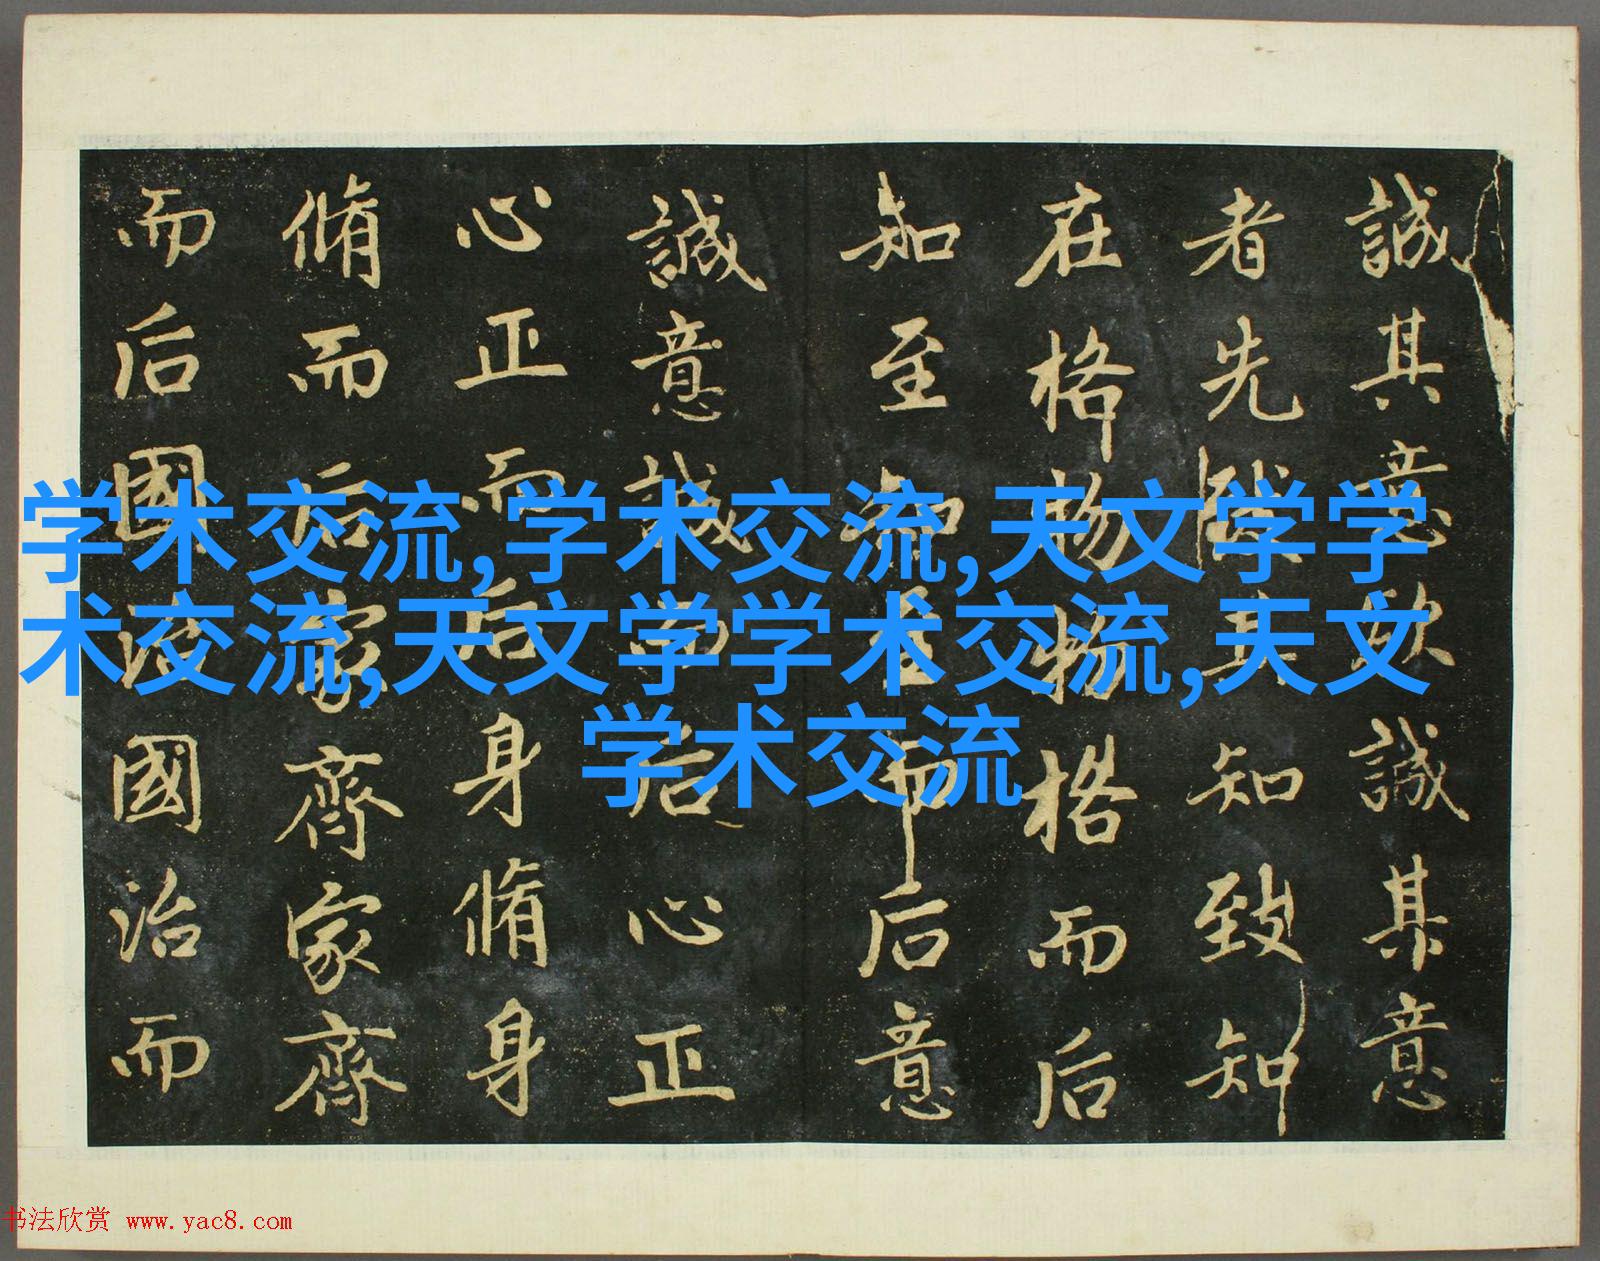 誠其意欲誠其意
者先致其知致知
在格物物格而后
知至知至而后意
誠意誠而后心正
心正而后身脩身
脩而后家齊家齊
而后國治國治而
学术交流,学术交流,天文学学
术交流,天文学学术交流,天文
学术交流
书法欣赏 www.yac8.com